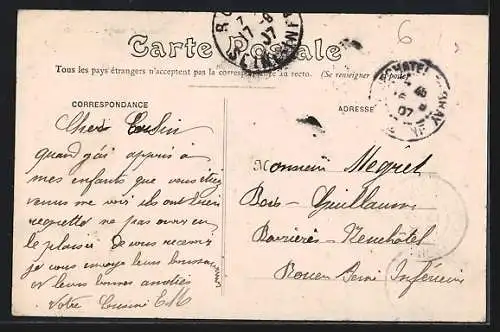 6
Carte Postale
Tous les pays étrangers n'acceptent pas la correspondance au recto. (Se renseigner à la poste)
CORRESPONDANCE
ADRESSE
Cher Cousin
quand j'ai appris à
mes enfants que vous étiez
venus me voir ils ont bien
regretté ne pas avoir eu
le plaisir de vous recevoir
je vous envoye leurs
et leurs bonnes amitiés
Votre Cousine
Monsieur Megret
Bois-Guillaume
Neuchâtel
Rouen Seine Inférieure
17-8
07
SEINE INF